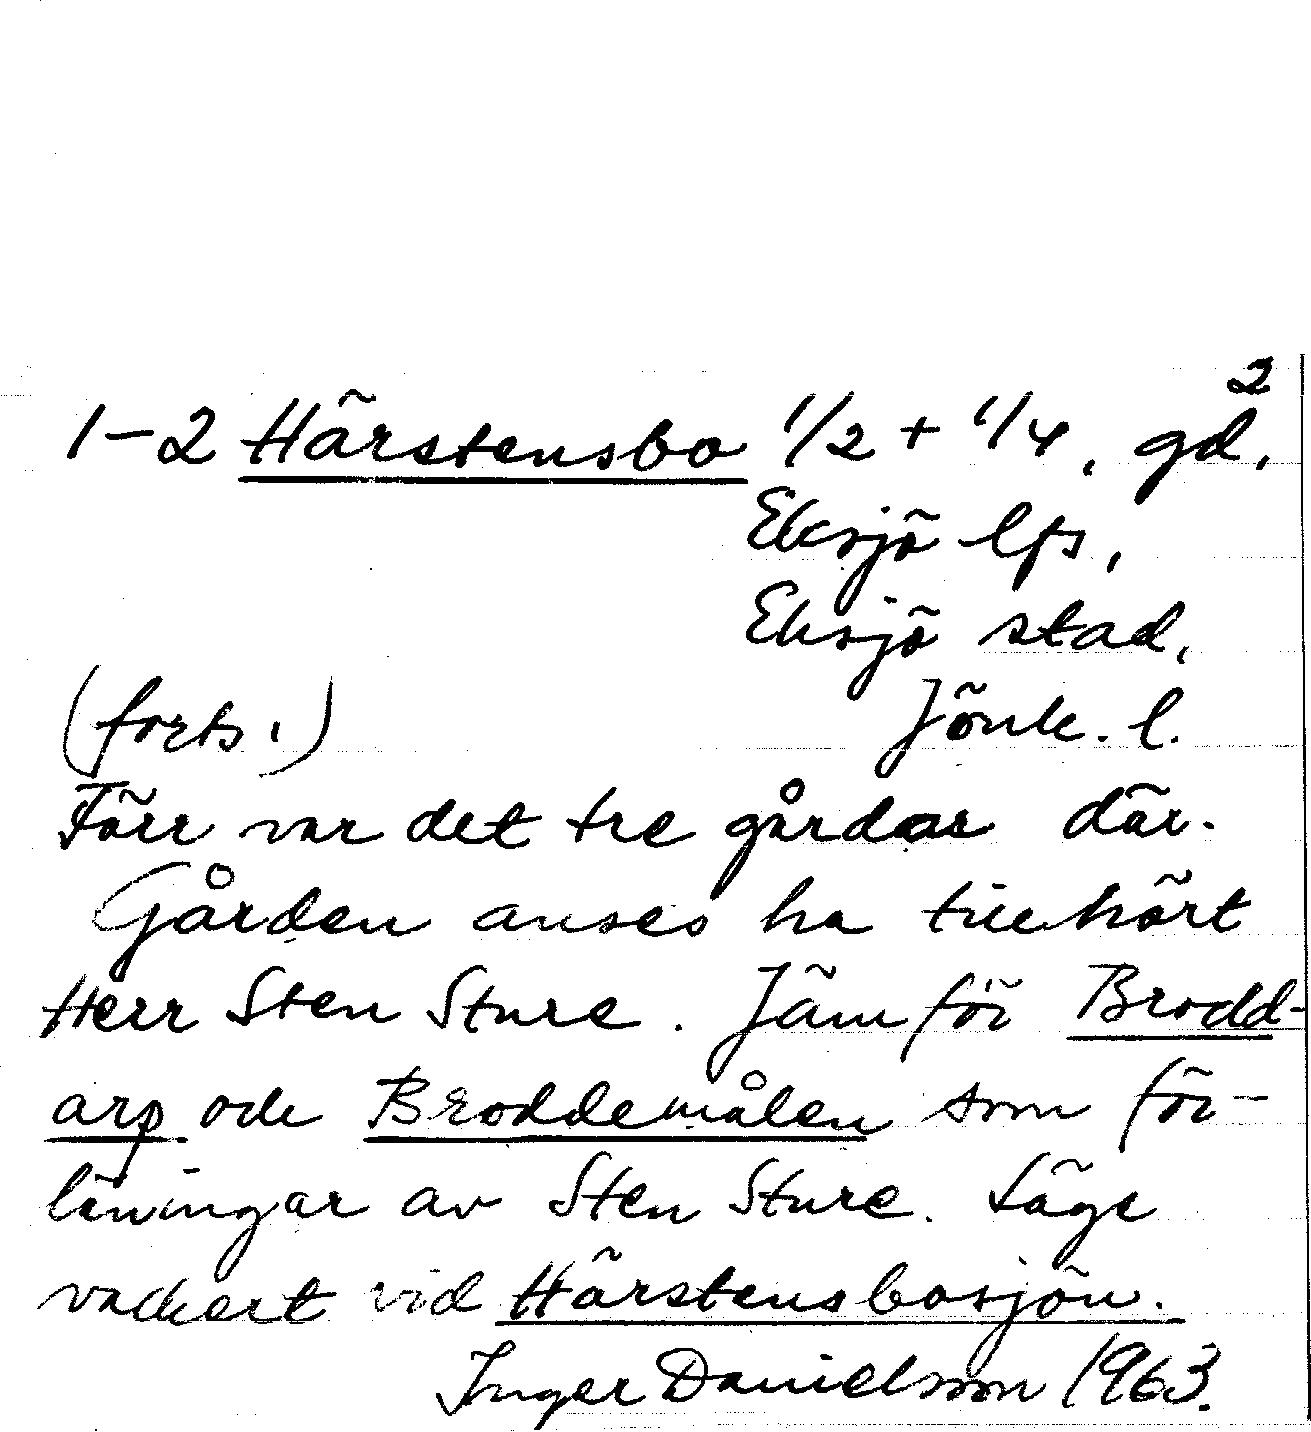 2
1-2 Härstensbo 1/2 + 1/4, gd,
Eksjö lfs,
Eksjö stad,
(forts.) Jönk. l.
Förr var det tre gårdar där.
Gården anses ha tillhört
Herr Sten Sture. Jämför Brodd-
arp och Broddemålen som för-
läningar av Sten Sture. Läge
vackert vid Härstensbosjön.
Inger Danielsson 1963.